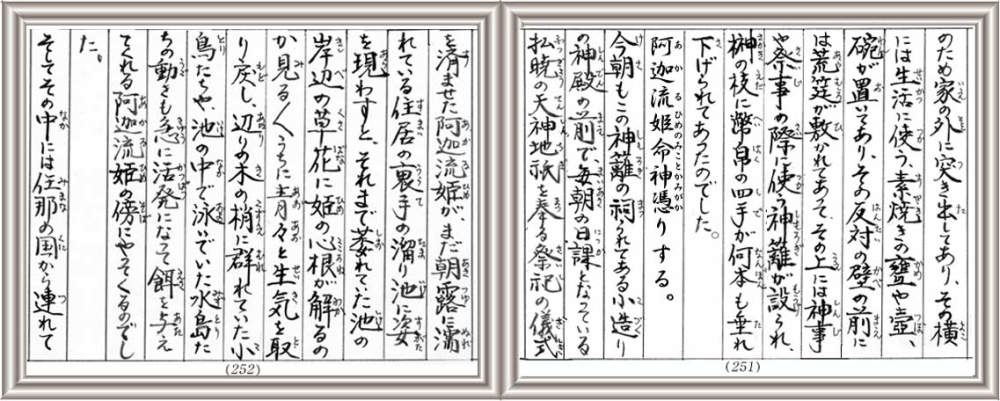 のため家の外に突き出してあり、その横
には生活に使う、素焼きの甕や壺、
碗が置いてあり、その反対の壁の前に
は荒筵が敷かれてあって、その上には神事
や祭事の際に使う神籬が設られ、
榊の枝に幣帛の四手が何本も垂れ
下げられてあったのでした。
阿迦流姫命神憑りする。
今朝もこの神籬の祠られてある小造り
の神殿の前で、毎朝の日課となっている
払暁の天神地祇を奉る祭祀の儀式
(251)
を済ませた阿迦流姫が、まだ朝露に濡
れている住居の裏手の溜り池に姿
を現わすと、それまで萎れていた池の
岸辺の草花に姫の心根が解るの
か見る〱うちに青々と生気を取
り戻し、辺りの木の梢に群れていた小
鳥たちや、池の中で泳いでいた水鳥た
ちの動きも急に活発になって餌を与え
てくれる阿迦流姫の傍にやってくるのでし
た。
そしてその中には任那の国から連れて
(252)